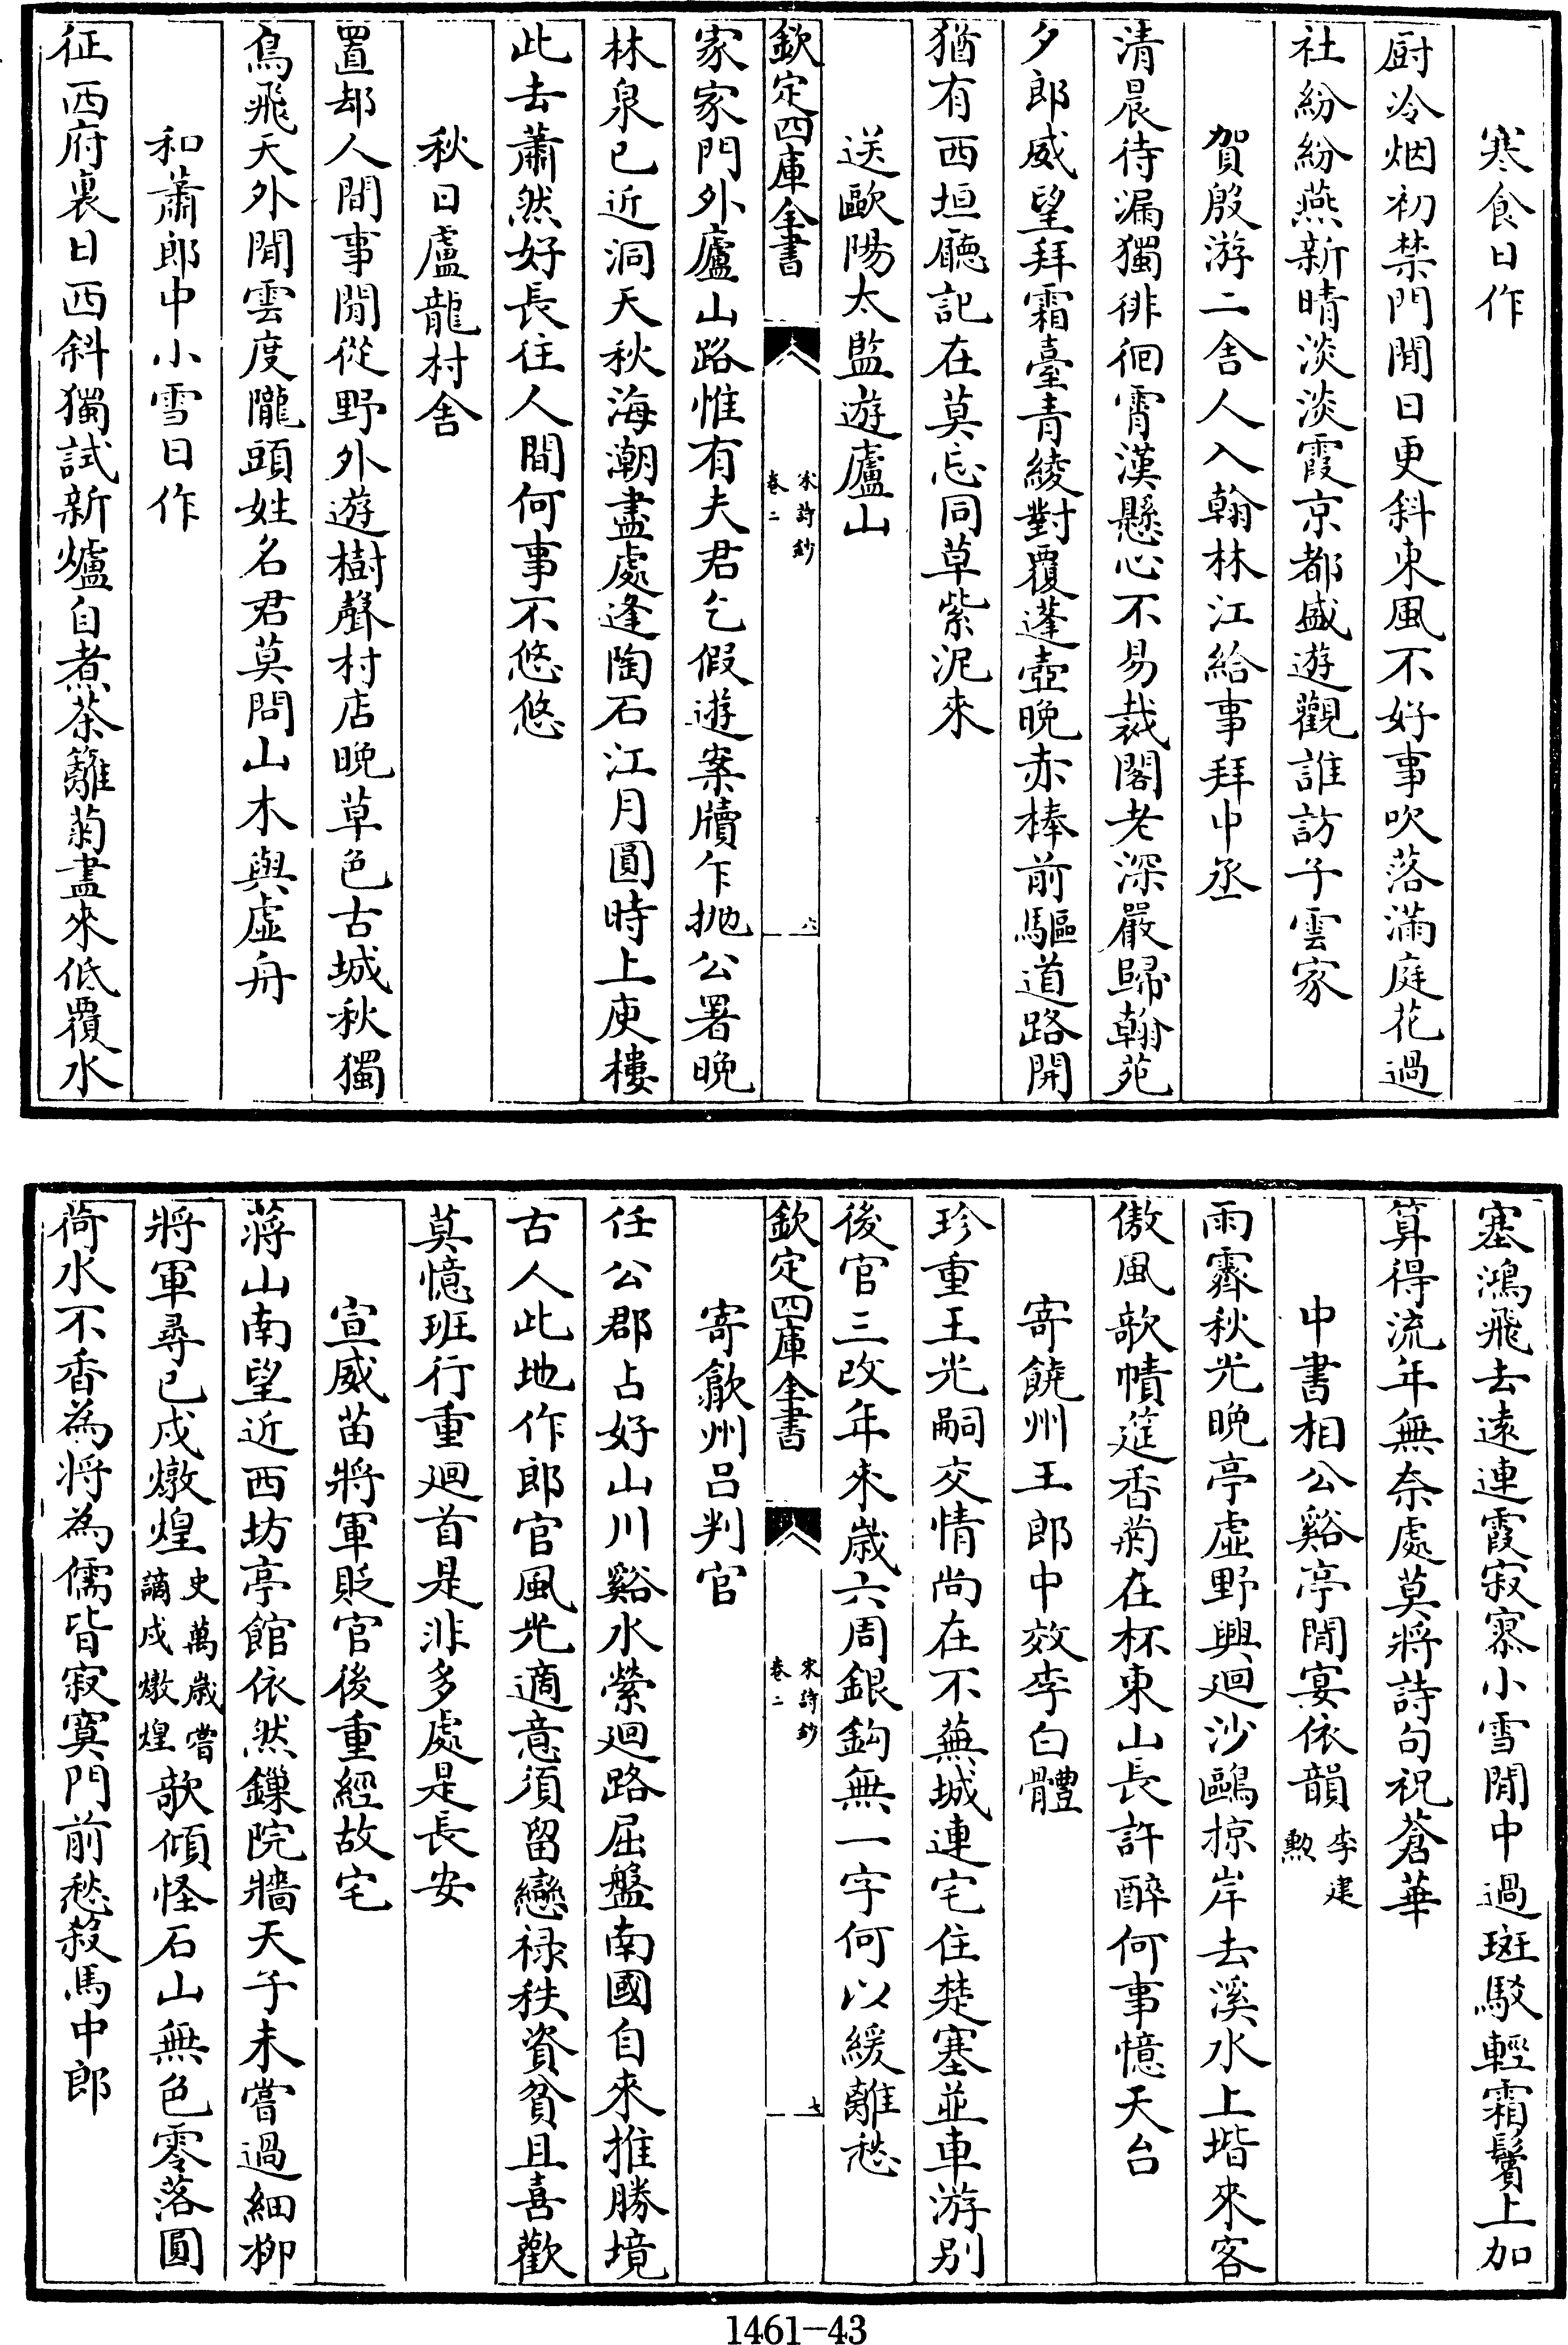 寒食日作
厨冷烟初禁門閒日更斜東風不好事吹落滿庭花過
社紛紛燕新晴淡淡霞京都盛遊觀誰訪子雲家
賀殷游二舎人入翰林江給事拜中丞
清晨待漏獨徘徊霄漢懸心不易裁閣老深嚴歸翰苑
夕郎威望拜霜臺青綾對覆蓬壺晚赤棒前驅道路開
猶有西垣廳記在莫忘同草紫泥來
送歐陽太監遊廬山
家家門外廬山路惟有夫君乞假遊案牘乍抛公署晚
林泉已近洞天秋海潮盡處逢陶石江月圓時上庾樓
此去蕭然好長往人間何事不悠悠
秋日盧龍村舎
置却人間事閒從野外遊樹聲村店晚草色古城秋獨
鳥飛天外閒雲度隴頭姓名君莫問山木與虛舟
和蕭郎中小雪日作
征西府裏日西斜獨試新爐自煮茶籬菊盡來低覆水
欽定四庫全書
宋詩鈔
卷二
六
塞鴻飛去遠連霞寂寥小雪閒中過斑駁輕霜鬢上加
算得流年無奈處莫將詩句祝蒼華
中書相公谿亭閒宴依韻李建勲
雨霽秋光晚亭虛野興廻沙鷗掠岸去溪水上堦來客
傲風欹幘筵香菊在杯東山長許醉何事憶天台
寄饒州王郎中效李白體
珍重王光嗣交情尚在不蕪城連宅住楚塞並車游别
後官三改年來嵗六周銀鈎無一字何以緩離愁
寄歙州呂判官
任公郡占好山川谿水縈廻路屈盤南國自來推勝境
古人此地作郎官風光適意須留戀禄秩資貧且喜歡
莫憶班行重廻首是非多處是長安
宣威苗將軍貶官後重經故宅
蔣山南望近西坊亭館依然鏁院牆天子未嘗過細栁
將軍尋已戍燉煌史萬嵗嘗謫戍燉煌欹傾怪石山無色零落圓
荷水不香為将為儒皆寂寞門前愁殺馬中郎
欽定四庫全書
宋詩鈔
卷二
七
1461-43